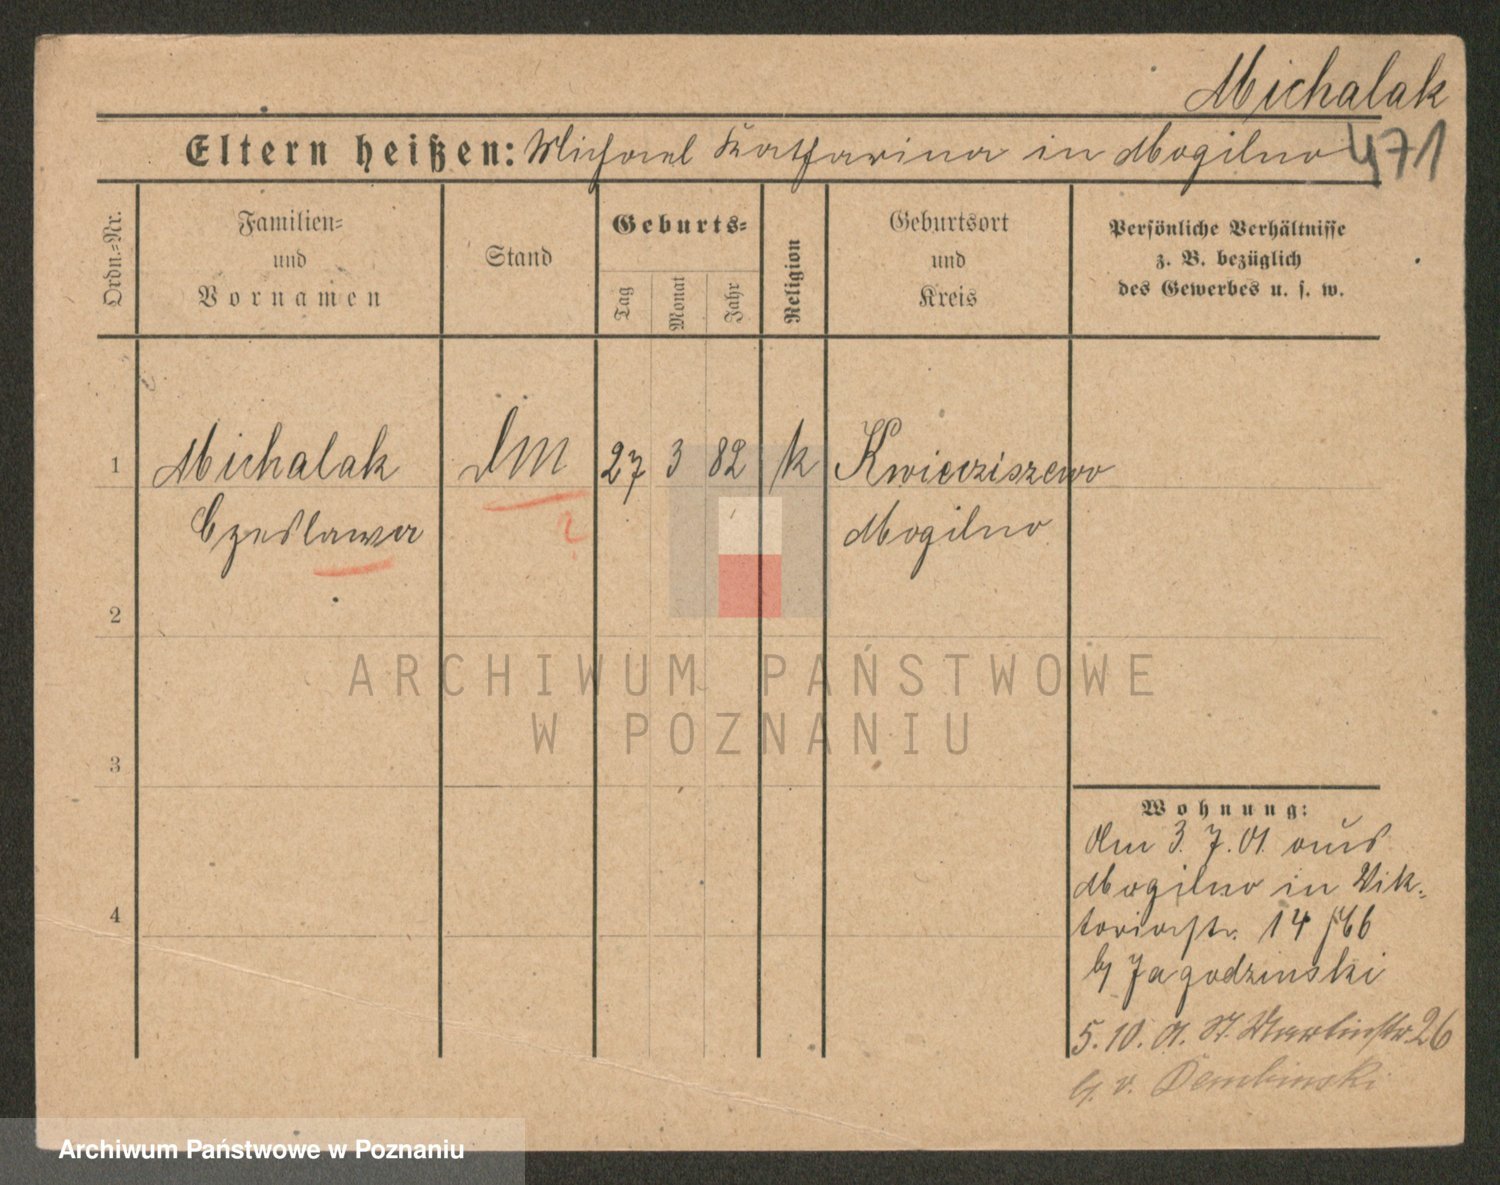 Michalak
Eltern heißen: Michael Katharina in Mogilno
471
Ordn.=Nr.
Familien=
und
Vornamen
Stand
Geburts=
Tag
Monat
Jahr
Religion
Geburtsort
und
Kreis
Persönliche Verhältnisse
z. B. bezüglich
des Gewerbes u. s. w.
1 Michalak DM 27 3 82 k Kwieciszewo
Czeslawa ? Mogilno
2
3
4
Wohnung:
Am 3. 7. 01. aus
Mogilno in Vik-
toriastr. 14
b/ Jagodzinski
5. 10. 01. St. Martinstr. 26
b/ v. Dembinski
ARCHIWUM PAŃSTWOWE
W POZNANIU
Archiwum Państwowe w Poznaniu